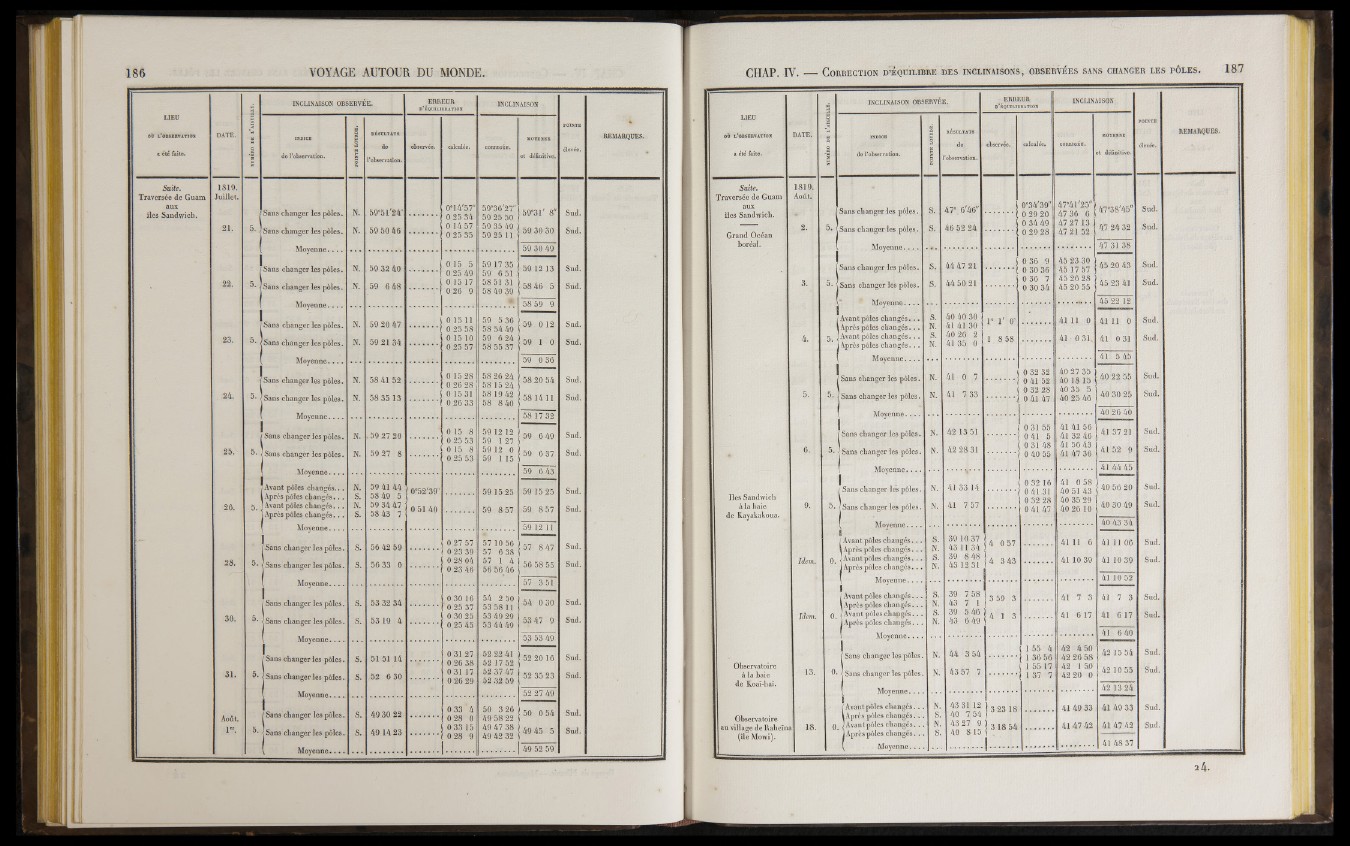 186 VOYAGE AUTOUR DU MONDE.
LIEU où L'OBSERVATION a été faite. DATE. NUMÉRO DE L'AIGUILLE. INCLINAISON OBSERVÉE. ERREUR D'ÉQUILIBRATION INCLINAISON POINTE élevée. REMARQUES.
de l'observation. RÉSULTATS de l'observation. observée. calculée. conclue. MOYENNE et définitive.
Suite. 1819.
Traversée de Guam aux îles Sandwich. Juillet.
21. 5. Sans changer les pôles. N. 59°51'24" 0°14'57" 59°36'27" 59°31' 8" Sud.
0 25 34 59 25 50
Sans changer les pôles. N. 59 50 46 0 14 57 59 35 49 59 30 30 Sud.
0 25 35 59 25 11
Moyenne.... 59 30 49
22. 5. Sans changer les pôles. N. 59 32 40 0 15 5 59 17 35 59 12 13 Sud.
0 25 49 59 6 51
Sans changer les pôles. N. 59 6 48 0 15 17 58 51 31 58 46 5 Sud.
0 26 9 58 40 39
Moyenne.... 58 59 9
23. 5. Sans changer les pôles. N. 59 20 47 0 15 11 59 5 36 59 0 12 Sud.
0 25 58 58 54 49
Sans changer les pôles. N. 59 21 34 0 15 10 59 6 24 59 1 0 Sud.
0 25 57 58 55 37
Moyenne.... 59 0 36
24. 5. Sans changer les pôles. N. 58 41 52 0 15 28 58 26 24 58 20 54 Sud.
0 26 28 58 15 24
Sans changer les pôles. N. 58 35 13 0 15 31 58 19 42 58 14 11 Sud.
0 26 33 58 8 40
Moyenne.... 58 17 32
25. 5. Sans changer les pôles. N. 59 27 20 0 15 8 59 12 12 59 6 49 Sud.
0 25 53 59 1 27
Sans changer les pôles. N. 59 27 8 0 15 8 59 12 0 59 6 37 Sud.
0 25 53 59 1 15
Moyenne.... 59 6 43
26. 5. Avant pôles changés... N. 59 41 44 0°52'39" 59 15 25 59 15 25 Sud.
Après pôles changés... S. 58 49 5
Avant pôles changés... N. 59 34 47 0 51 40 59 8 57 59 8 57 Sud.
Après pôles changés... S. 58 43 7
Moyenne.... 59 12 11
28. 5. Sans changer les pôles. S. 56 42 59 0 27 57 57 10 56 57 8 47 Sud.
0 23 39 57 6 38
Sans changer les pôles. S. 56 33 0 0 28 04 57 1 4 56 58 55 Sud.
0 23 46 56 56 46
Moyenne.... 57 3 51
30. 5. Sans changer les pôles. S. 53 32 34 0 30 16 54 2 50 54 0 30 Sud.
0 25 37 53 58 11
Sans changer les pôles. S. 53 19 4 0 30 25 53 49 29 53 47 9 Sud.
0 25 45 53 44 49
Moyenne.... 53 53 49
31. 5. Sans changer les pôles. S. 51 51 14 0 31 27 52 22 41 52 20 16 Sud.
0 26 38 52 17 52
Sans changer les pôles. S. 52 6 30 0 31 17 52 37 47 52 35 23 Sud.
0 26 29 52 32 59
Moyenne.... 52 27 49
Août.
1er. 5. Sans changer les pôles. S. 49 30 22 0 33 4 50 3 26 50 0 54 Sud.
0 28 0 49 58 22
Sans changer les pôles. S. 49 14 23 0 33 15 49 47 38 49 45 5 Sud.
0 28 9 49 42 32
Moyenne.... 49 52 59
CHAP. IV. — CORRECTION D'ÉQUILIBRE DES INCLINAISONS, OBSERVÉES SANS CHANGER LES PÔLES. 187
LIEU où L'OBSERVATION a été faite. DATE. NUMÉRO DE L'AIGUILLE. INCLINAISON OBSERVÉE. ERREUR D'ÉQUILIBRATION INCLINAISON POINTE élevée. REMARQUES.
de l'observation. RÉSULTATS de l'observation. observée. calculée. conclue. MOYENNE et définitive.
Suite. 1819.
Traversée de Guam aux îles Sandwich. Août.
Grand Océan boréal.
2. 5. Sans changer les pôles. S. 47° 6'46" 0°34'39" 47°41'25" 47°38'45" Sud.
0 29 20 47 36 6
Sans changer les pôles. S. 46 52 24 0 34 49 47 27 13 47 24 32 Sud.
0 29 28 47 21 52
Moyenne.... 47 31 38
3. 5. Sans changer les pôles. S. 44 47 21 0 36 9 45 23 30 45 20 43 Sud.
0 30 36 45 17 57
Sans changer les pôles. S. 44 50 21 0 36 7 45 26 28 45 23 41 Sud.
0 30 34 45 20 55
Moyenne.... 45 22 12
4. 5. Avant pôles changés... S. 40 40 30 1° 1' 0" 41 11 0 41 11 0 Sud.
Après pôles changés... N. 41 41 30
Avant pôles changés... S. 40 26 2 1 8 58 41 0 31 41 0 31 Sud.
Après pôles changés... N. 41 35 0
Moyenne.... 41 5 45
5. 5. Sans changer les pôles. N. 41 0 7 0 32 32 40 27 35 40 22 55 Sud.
0 41 52 40 18 15
Sans changer les pôles. N. 41 7 33 0 32 28 40 35 5 40 30 25 Sud.
0 41 47 40 25 46
Moyenne.... 40 26 40
6. 5. Sans changer les pôles. N. 42 13 51 0 31 55 41 41 56 41 37 21 Sud.
0 41 5 41 32 46
Sans changer les pôles. N. 42 28 31 0 31 48 41 56 43 41 52 9 Sud.
0 40 55 41 47 36
Moyenne.... 41 44 45
Iles Sandwich à la baie de Kayakakoua.
9. 5. Sans changer les pôles. N. 41 33 14 0 32 16 41 0 58 40 56 20 Sud.
0 41 31 40 51 43
Sans changer les pôles. N. 41 7 57 0 32 28 40 35 29 40 30 49 Sud.
0 41 47 40 26 10
Moyenne.... 40 43 34
Idem. 0. Avant pôles changés... S. 39 10 37 4 0 57 41 11 6 41 11 06 Sud.
Après pôles changés... N. 43 11 34
Avant pôles changés... S. 39 8 48 4 3 43 41 10 39 41 10 39 Sud.
Après pôles changés... N. 43 12 51
Moyenne.... 41 10 52
Idem. 0. Avant pôles changés... S. 39 7 58 3 59 3 41 7 3 41 7 3 Sud.
Après pôles changés... N. 43 7 1
Avant pôles changés... S. 39 5 46 4 1 3 41 6 17 41 6 17 Sud.
Après pôles changés... N. 43 6 49
Moyenne.... 41 6 40
Observatoire à la baie de Koaï-haï.
13. 0. Sans changer les pôles. N. 44 3 54 1 55 4 42 4 50 42 15 54 Sud.
1 36 56 42 26 58
Sans changer les pôles. N. 43 57 7 1 55 17 42 1 50 42 10 55 Sud.
1 37 7 42 20 0
Moyenne.... 42 13 24
Observatoire au village de Raheina (île Mowi).
18. 0. Avant pôles changés... N. 43 31 12 3 23 18 41 49 33 41 49 33 Sud.
Après pôles changés... S. 40 7 54
Avant pôles changés... N. 43 27 9 3 18 54 41 47 42 41 47 42 Sud.
Après pôles changés... S. 40 8 15
Moyenne.... 41 48 37
24.